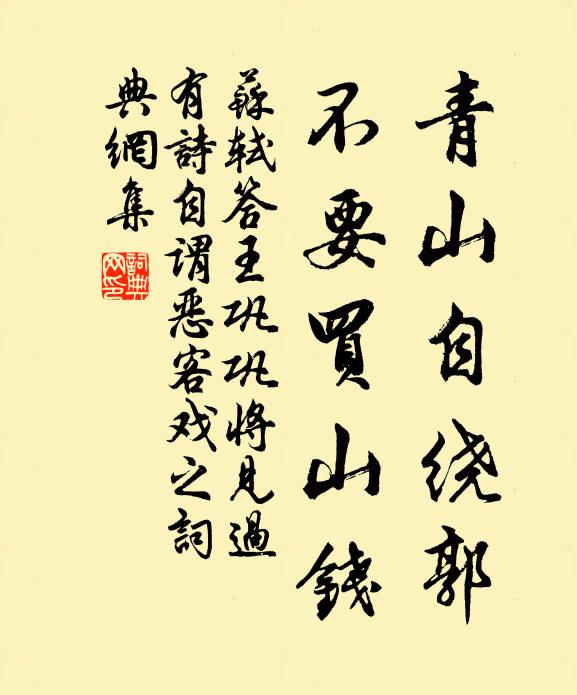 青山自绕郭
不要買山錢
蘇軾答王巩巩將見過
有詩自謂惡客戏之詞
典網集
詞典网印